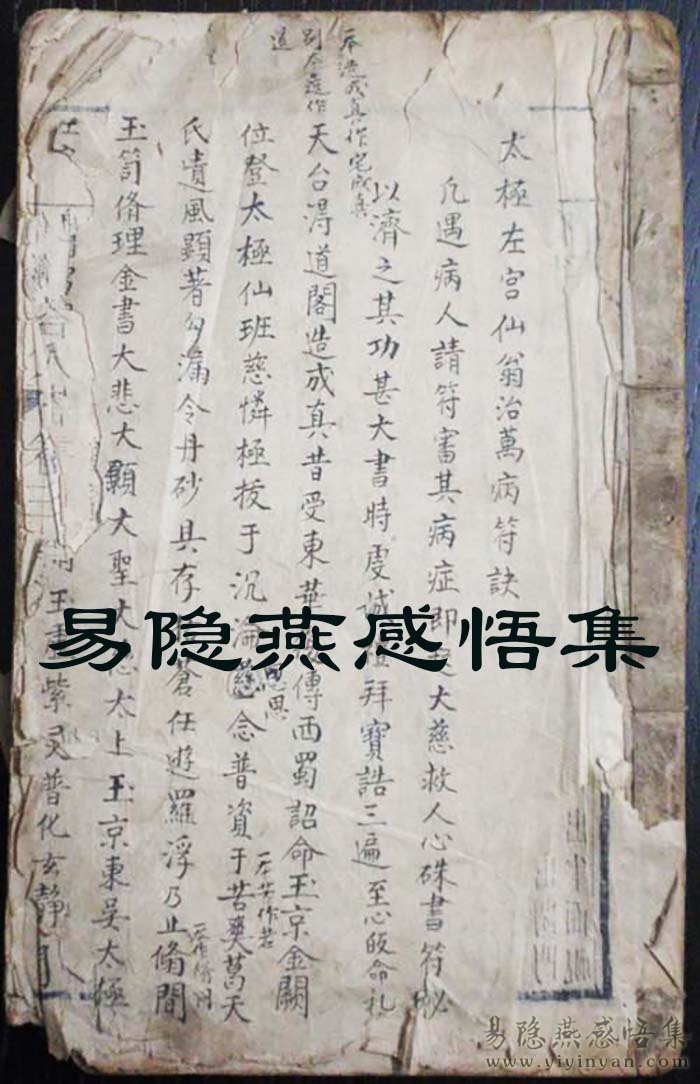 太極左宮仙翁治萬病符訣
凡遇病人請符審其病症即大慈救人心硃書符祕
以濟之其功甚大書時虔誠拜寶誥三遍至心皈命礼
天台得道閣造成真昔受東華傳西蜀詔命玉京金闕
位登太極仙班慈憐極拔于沉淪慈念普資于苦爽葛天
氏遺風顯著勾漏令丹砂具存蒼任遊羅浮乃止脩間
玉笥脩理金書大悲大顯大聖大太上玉京東吳太極
玉書紫灵普化玄靜
一本造成真作宅成真
別本遵作
道
恩
一本苦作若
易隐燕感悟集
易隐燕感悟集
www.yiyinyan.com